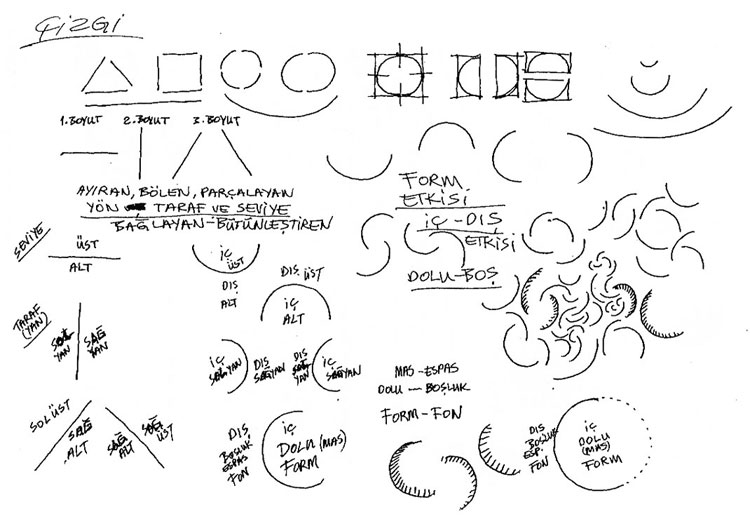 ÇİZGİ
1.BOYUT 2.BOYUT 3.BOYUT
AYIRAN, BÖLEN, PARÇALAYAN
YÖN TARAF VE SEVİYE
BAĞLAYAN-BÜTÜNLEŞTİREN
FORM
ETKİSİ
İÇ-DIŞ
ETKİSİ
DOLU-BOŞ
SEVİYE
ÜST
ALT
İÇ
ÜST
DIŞ
ALT
DIŞ ÜST
İÇ
ALT
TARAF
(YAN)
YAN
SAĞ
YAN
İÇ
YAN
DIŞ
YAN
DIŞ
YAN
İÇ
YAN
MAS-ESPAS
DOLU-BOŞLUK
FORM-FON
SOL ÜST
SAĞ
ALT
SAĞ
ALT
ÜST
DIŞ
BOŞLUK
ESPAS
FON
İÇ
DOLU (MAS)
FORM
DIŞ
BOŞLUK
ESP.
FON
İÇ
DOLU
(MAS)
FORM